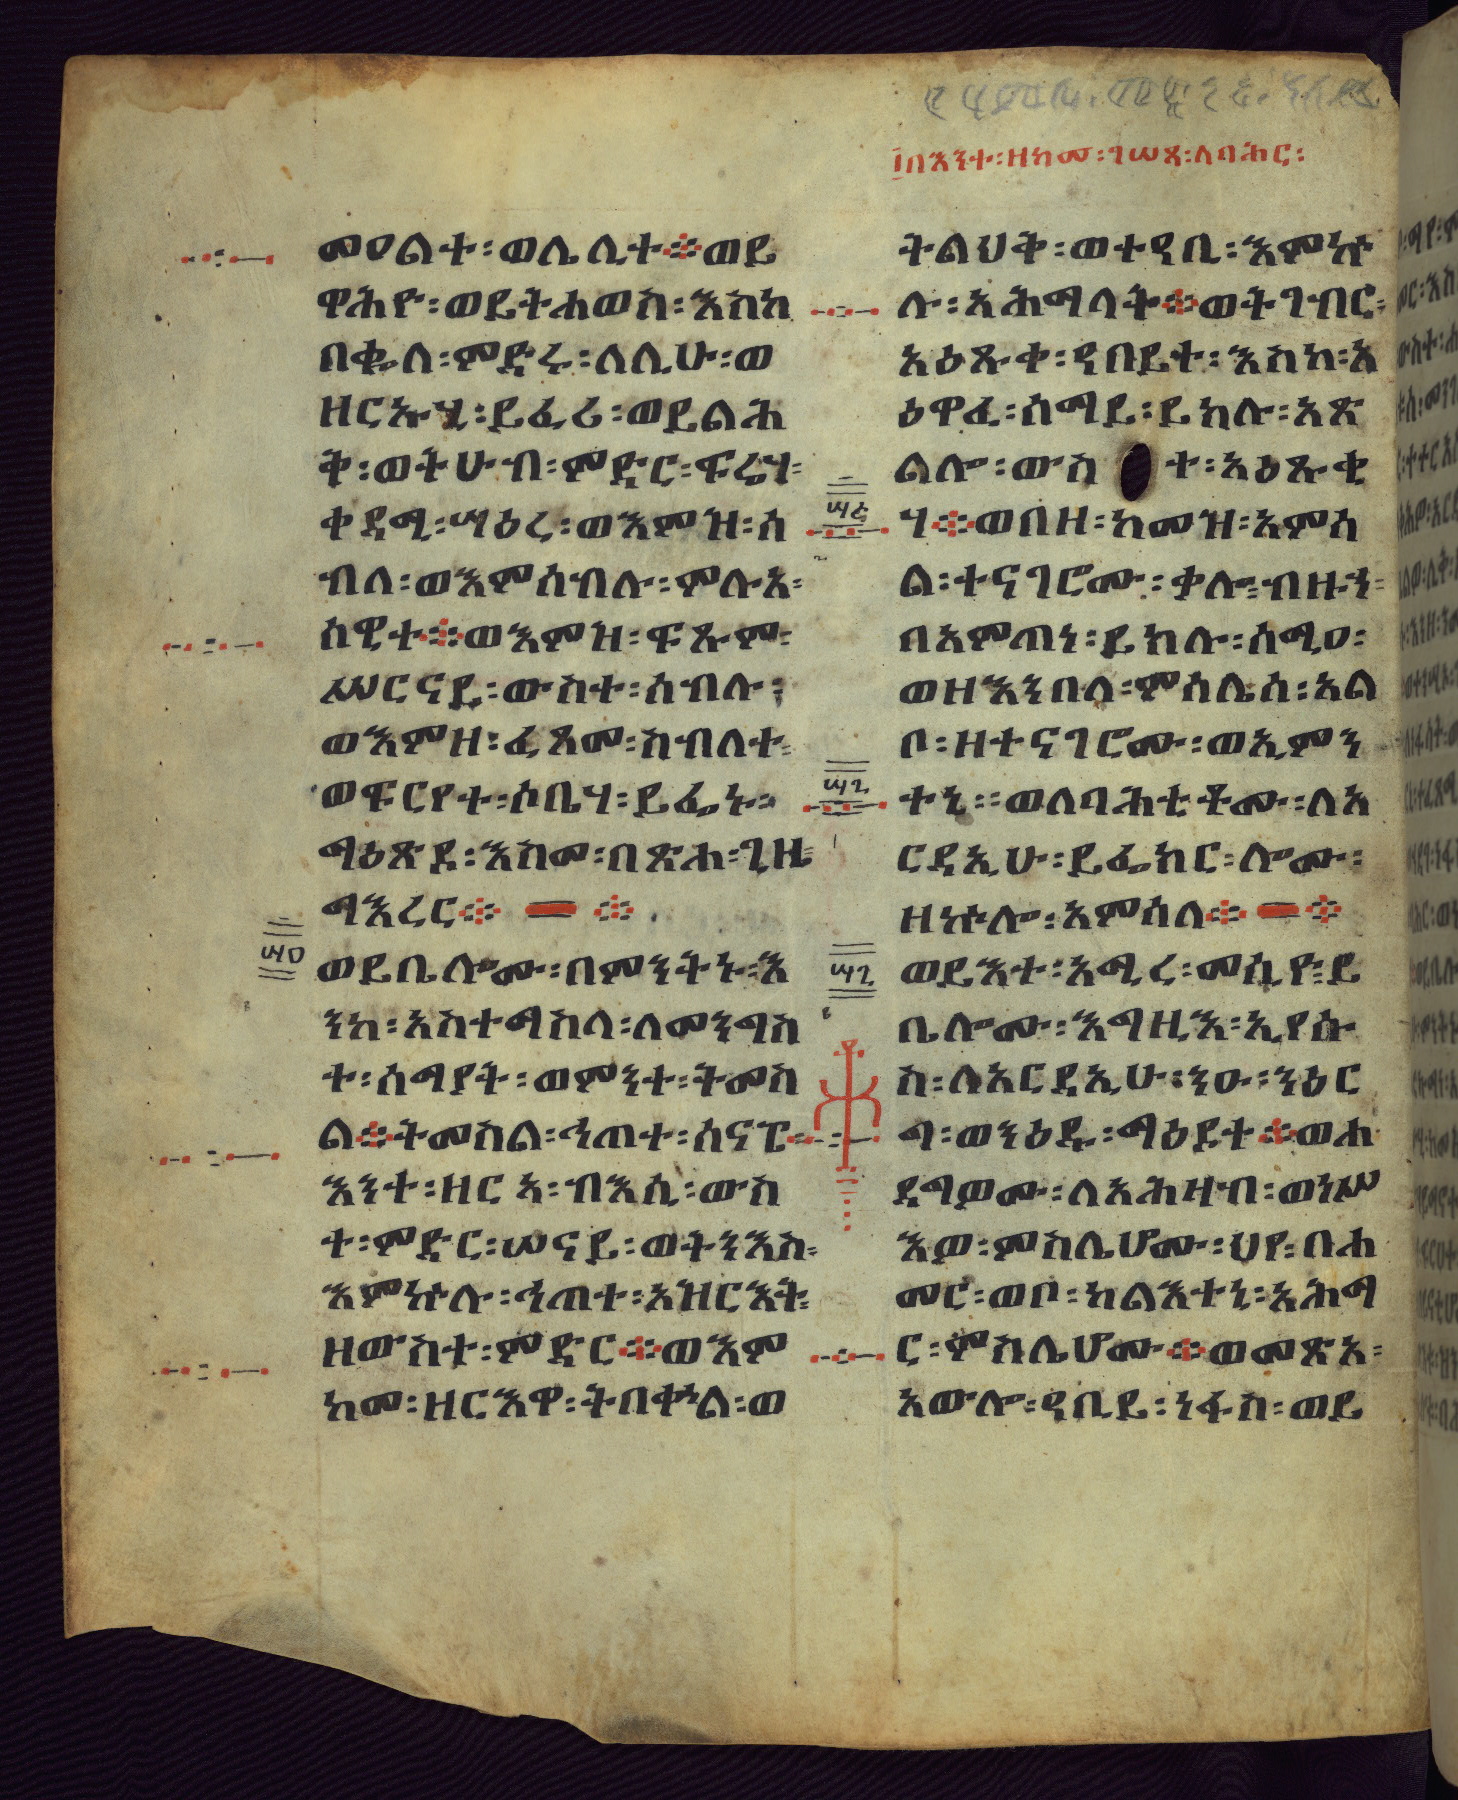 በእንተ፡ዘከመ፡ገሠጸ፡ለባሕር፡
መዐልተ፡ወሌሊተ፨ወይ
ዋሕዮ፡ወይትሐወስ፡እስከ
በቈለ፡ምድረ፡ለሊሁ፡ወ
ዘርኡሂ፡ይፈሪ፡ወይልሕ
ቅ፡ወትሁብ፡ምድር፡ፍሬሃ፡
ቀዳሚ፡ሣዕረ፡ወእምዝ፡ሰ
ብለ፡ወእምሰብሉ፡ምሉአ፡
ሰዊተ፨ወእምዝ፡ፍጹም፡
ሥርናይ፡ውስተ፡ሰብሉ፡
ወእምዘ፡ፈጸመ፡ሰብለተ፡
ወፍርየተ፡ሶቤሃ፡ይፌኑ፡
ማዕጽደ፡እስመ፡በጽሐ፡ጊዜ
ማእረር፨ ፨
ሣዐ
ወይቤሎሙ፡በምንትኑ፡እ
ንከ፡አስተማስላ፡ለመንግሥ
ተ፡ሰማያት፡ወምንተ፡ትመስ
ል፨ትመስል፡ኅጠተ፡ሰናፔ፡
እንተ፡ዘርኣ፡ብእሲ፡ውስ
ተ፡ምድር፡ሠናይ፡ወትንእስ፡
እምኵሉ፡ኅጠተ፡አዝርእት፡
ዘውስተ፡ምድር፨ወእም
ከመ፡ዘርእዋ፡ትበቍል፡ወ
ትልህቅ፡ወተዓቢ፡እምኵ
ሉ፡አሕማላት፨ወትገብር፡
አዕጹቀ፡ዓበይተ፡እስከ፡አ
ዕዋፈ፡ሰማይ፡ይክሉ፡አጽ
ልሎ፡ውስተ፡አዕጹቂ
ሃ፨ወበዘ፡ከመዝ፡አምሳ
ል፡ተናገሮሙ፡ቃሎ፡ብዙኀ፡
በአምጣነ፡ይክሉ፡ሰሚዐ፡
ወዘእንበለ፡ምሳሌሰ፡አል
ቦ፡ዘተናገሮሙ፡ወኢምን
ተኒ፡፡ወለባሕቲቶሙ፡ለአ
ርዳኢሁ፡ይፌክር፡ሎሙ፡
ዘኵሎ፡አምሳለ፨ ፨
ወይእተ፡አሚረ፡መስዮ፡ይ
ቤሎሙ፡እግዚእ፡ኢየሱ
ስ፡ለአርዳኢሁ፡ንዑ፡ንዕር
ግ፡ወንዕዱ፡ማዕደተ፨ወሐ
ደግዎሙ፡ለአሕዛብ፡ወነሥ
እዎ፡ምስሌሆሙ፡ህየ፡በሐ
መር፡ወቦ፡ካልእተኒ፡አሕማ
ር፡ምስሌሆሙ፨ወመጽአ፡
አውሎ፡ዓቢይ፡ነፋስ፡ወይ